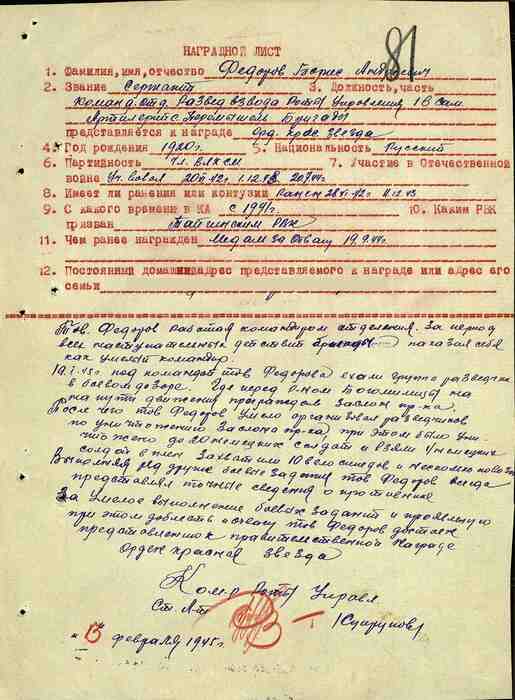 81
НАГРАДНОЙ ЛИСТ
1. Фамилия, имя, отчество Федоров Борис Андреевич
2. Звание Сержант 3. Должность, часть
команд. отд. развед взвода Роты Управления 16 сам
Артиллерийс Перемышль Бригады
представляется к награде орд. Крас. Звезда
4. Год рождения 1920г. 5. Национальность Русский
6. Партийность Чл. ВЛКСМ 7. Участие в Отечественной
войне Уч. боях 20
8. Имеет ли ранения или контузии Ранен
9. С какого времени в КА с 1941г. 10. Каким РВК
призван РВК
11. Чем ранее награжден Медалм За Отвагу 19.9.44г.
12. Постоянный домашний адрес представляемого к награде или адрес его
семьи
Тов. Федоров работая командиром отделения. За период
всех наступательных действий бригады показал себя
как умелый командир.
19.1.45г. под командой тов Федорова ехали группа разведчик
в боевом дозоре. Где перед на
на пути движения преграждал заслон пр-ка.
После чего тов Федоров умело организовал разведчиков
по уничтожению Заслона пр-ка, при этом было уни-
чтожено до 20 немецких солдат и взяли 4 немецких
солдат в плен Захватили 10 велосипедов и несколько
Выполняя ряд других боевые задания тов Федоров всегда
представлял точные сведения о противнике
За умелое выполнение боевых заданий и проявленую
при этом доблесть и отвагу тов Федоров достоен
представления к правительственной награде
Орден Красная Звезда
Ком-р Роты Управл.
Ст. Л-т /Супрунов/
"13" февраля 1945г.